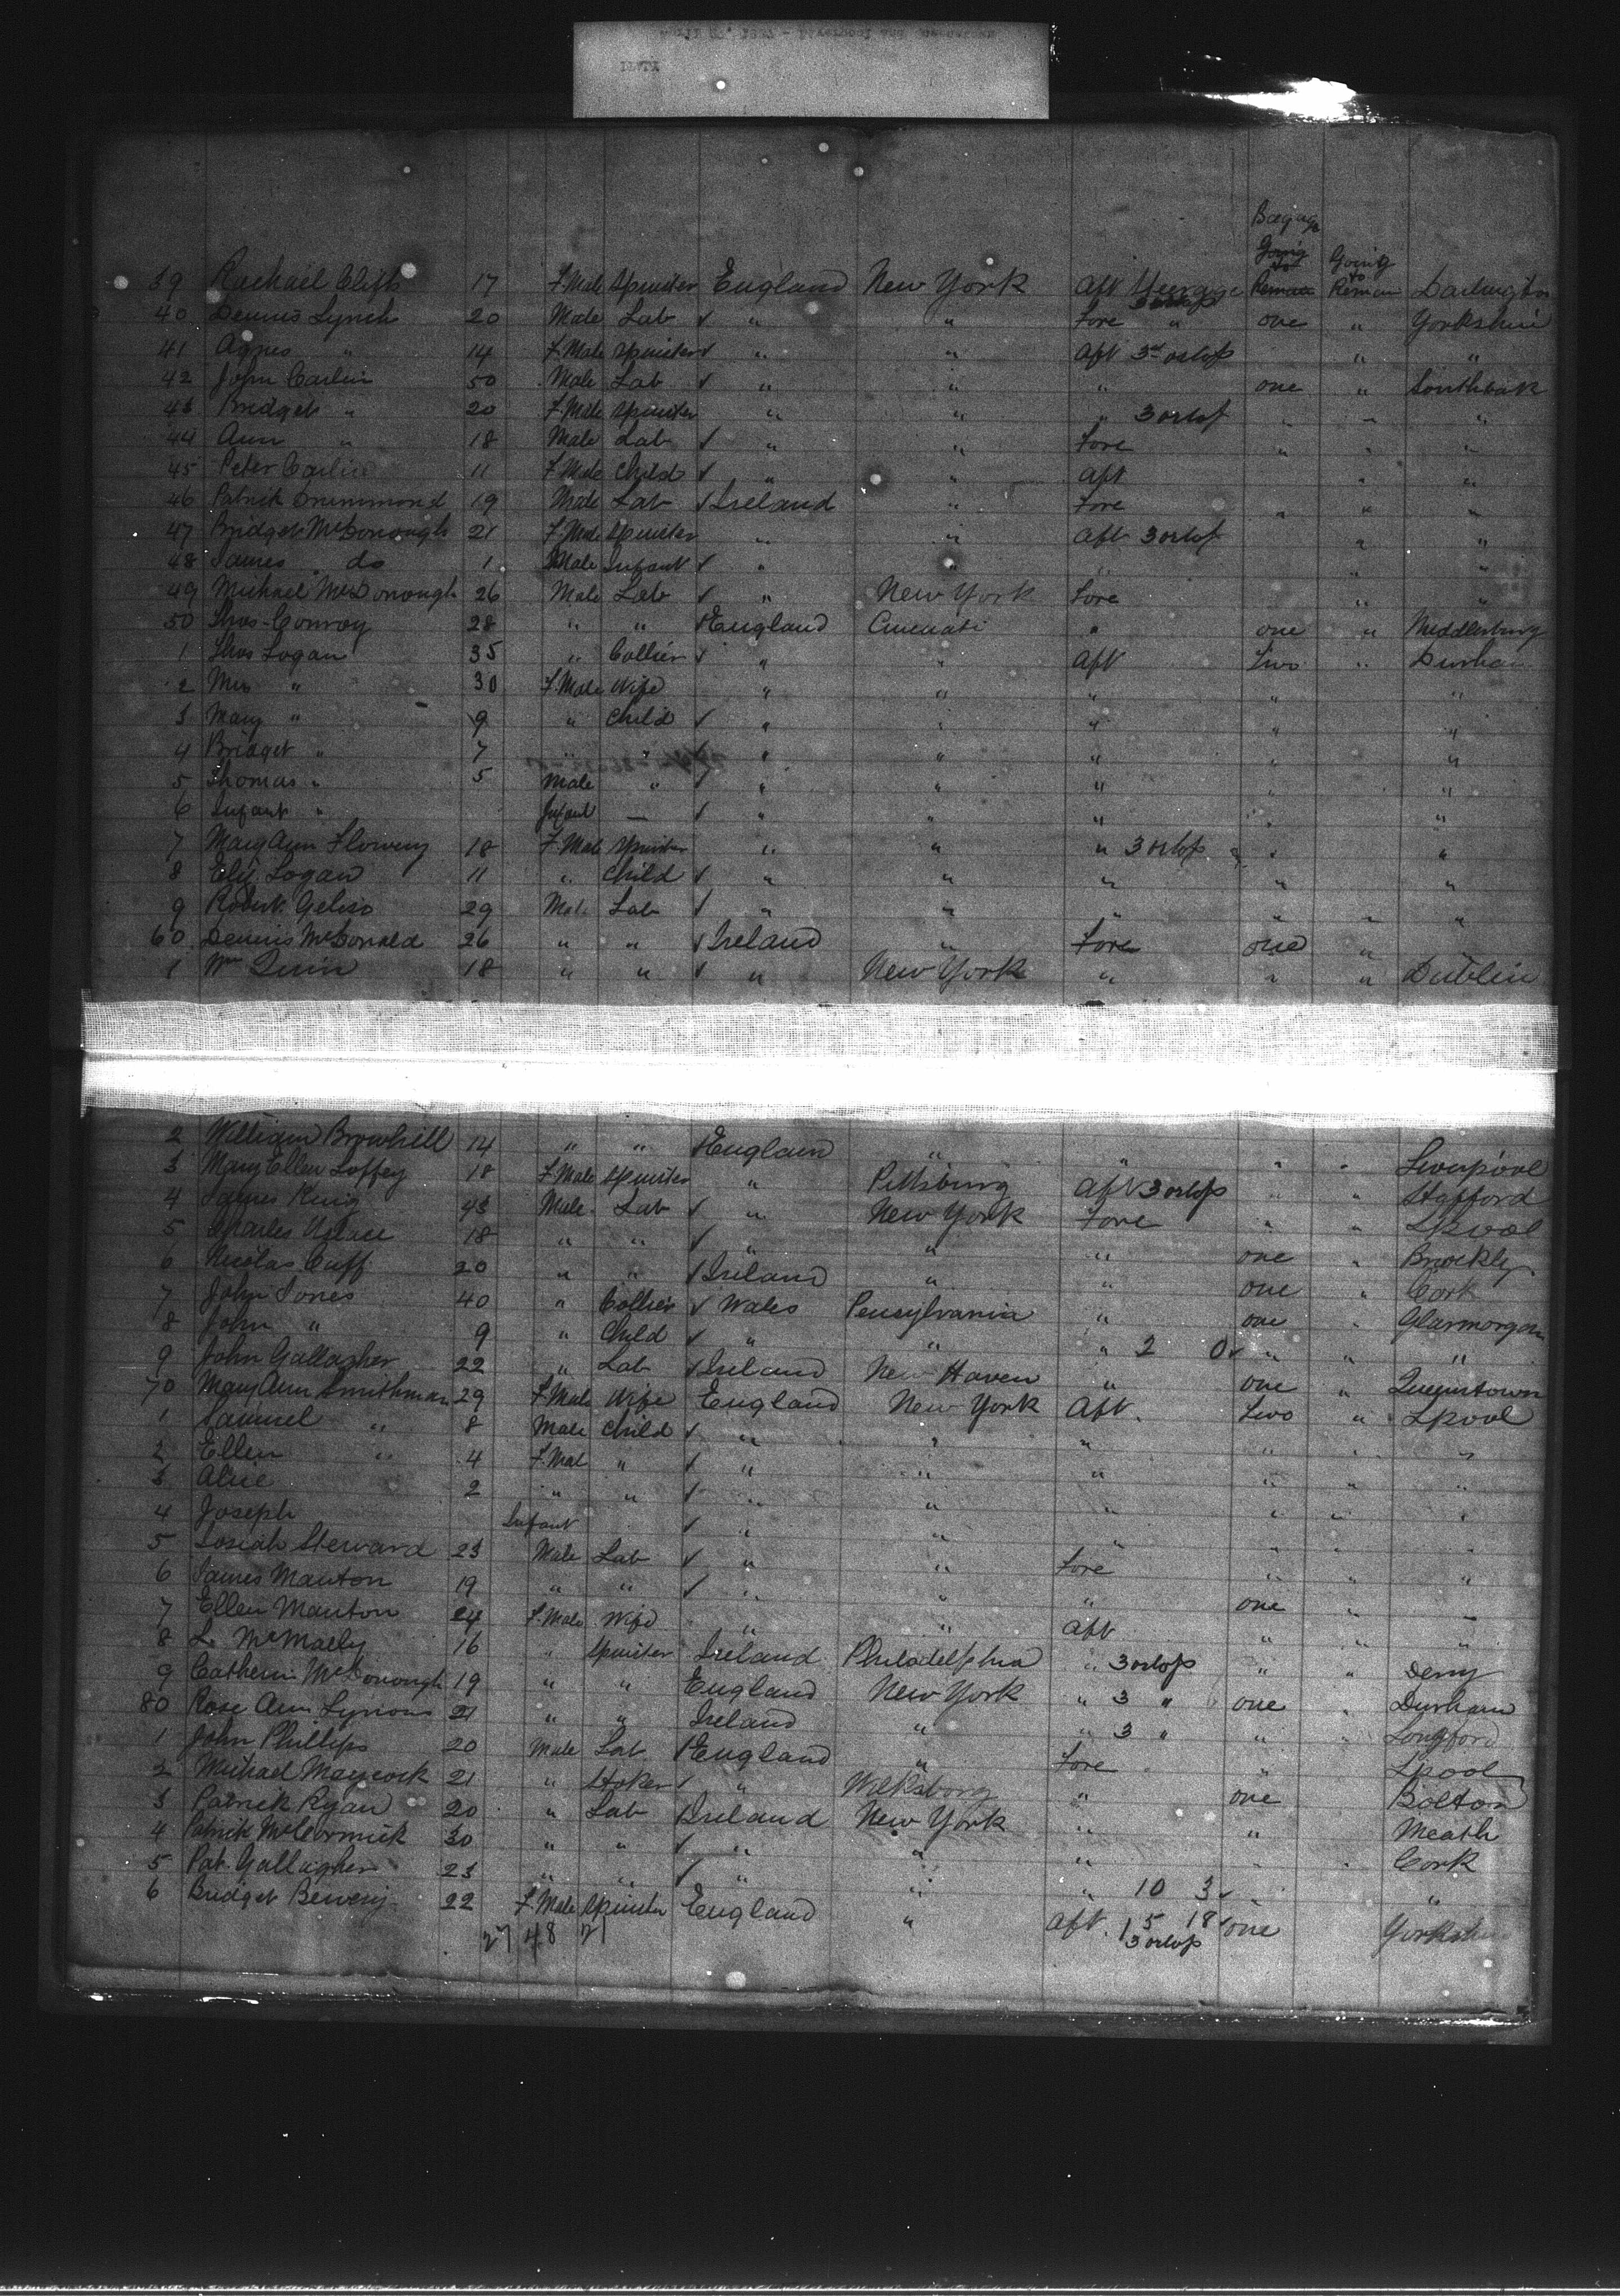 Bagage
Going to Remain Going to Remain
39 Rachael Clift 17 F.Male Spinster England New York Aft Steerage Darlington
40 Dennis Lynch 20 Male Lab ✓ " " Fore " one " Yorkshire
41 Agnes " 14 F.Male Spinster ✓ " " Aft 3rd orlop " "
42 John Carlin 50 Male Lab ✓ " " " one " Southbak
43 Bridget " 20 F.Male Spinster " " " 3 orlop " " "
44 Ann " 18 Male Lab ✓ " " Fore " " "
45 Peter Carlin 11 F.Male Child ✓ " " Aft " "
46 Patrick Drummond 19 Male Lab ✓ Ireland " Fore " " "
47 Bridget McDonough 21 F.Male Spinster " " Aft 3 orlop " "
48 James do 1 Male Infant ✓ " " " " "
49 Michael McDonough 26 Male Lab ✓ " New York Fore " "
50 Thos Conroy 28 " " ✓ England Cincinati " one " Middlesburg
1 Thos Logan 35 " Collier ✓ " " Aft Two " Durham
2 Mrs " 30 F.Male Wife " " " " "
3 Mary " 9 " Child ✓ " " " " "
4 Bridget " 7 " " ✓ " " " " "
5 Thomas " 5 Male " ✓ " " " " "
6 Infant " Infant — ✓ " " " " "
7 Mary Ann Flowery 18 F.Male Spinster " " " 3 orlop " "
8 Eliz Logan 11 " Child ✓ " " " " "
9 Robert 29 Male Lab ✓ " " " " " "
60 Dennis McDonald 26 " " ✓ Ireland " Fore one "
1 Wm Quin 18 " " ✓ " New York " " " Dublin
2 William Browhill 14 " " ✓ England " " " " Liverpool
3 Mary Ellen Loffey 18 F.Male Spinster " Pittsburg Aft 3 orlop " " Stafford
4 James King 43 Male Lab ✓ " New York Fore " " Lpool
5 Charles 18 " " ✓ " " " one " Brockley
6 Nicolas Cuff 20 " " ✓ Ireland " " one " Cork
7 John Jones 40 " Collier ✓ Wales Pensylvania " one " Glarmorgan
8 John " 9 " Child ✓ " " " 2 0 ✓ " " "
9 John Gallagher 22 " Lab ✓ Ireland New Haven " one " Queenstown
70 Mary Ann Smithman 29 F.Male Wife England New York Aft. Two " Lpool
1 Samuel " 8 Male Child ✓ " " " " " "
2 Ellen " 4 F.Mal " ✓ " " " " " "
3 Alice 2 " " ✓ " " " " " "
4 Joseph Infant ✓ " " " " " "
5 Josiah Steward 23 Male Lab ✓ " " Fore " " "
6 James Manton 19 " " ✓ " " " one " "
7 Ellen Manton 24 F.Male Wife " " Aft " " "
8 L. 16 " Spinster Ireland Philadelphia " 3 orlop " " Derry
9 Catherin McDonough 19 " " England New York " 3 " one " Durham
80 Rose Ann Lynous 21 " " Ireland " " 3 " " " Longford
1 John Phillips 20 Male Lab ✓ England " Fore " Lpool
2 Michael Maycock 21 " Stoker ✓ " Wilksborg " one Bolton
3 Patrick Ryan 20 " Lab ✓ Ireland New York " " Meath
4 Patrik McCormick 30 " " ✓ " " " " Cork
5 Pat. Gallagher 23 " " ✓ " " " 10 3 ✓ " "
6 Bridget 22 F.Male Spinster England " Aft. 15 18 ✓ one Yorkshire
27 48 21 3 orlop